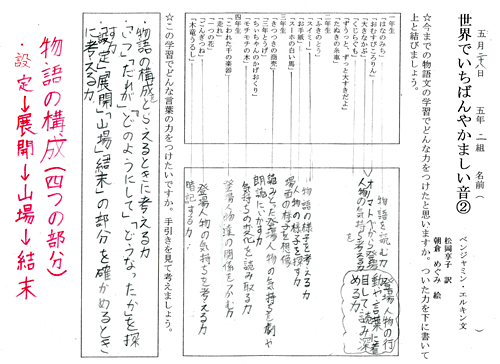 五月二十八日 五年 二組 名前（
世界でいちばんやかましい音②
ベンジャミン・エルキン文
松岡享子 訳
朝倉 めぐみ 絵
☆今までの物語文の学習でどんな力をつけたと思いますか。ついた力を下に書いて
上と結びましょう。
一年生
「はなのみち」
「おむすびころりん」
「おおきなかぶ」
「くじらぐも」
「ずうっと、ずっと大すきだよ」
「たぬきの糸車」
二年生
「ふきのとう」
「お手紙」
「スーホの白い馬」
三年生
「きつつきの商売」
「三年とうげ」
「ちいちゃんのかげおくり」
「モチモチの木」
四年生
「こわれた千の楽器」
「走れ」
「一つの花」
「ごんぎつね」
「木竜うるし」
物語を読む力
オノマトペから登場
人物の気持ちを考える力
登場人物の行
動や言葉に着
目して読み深
める力
物語の様子を考える力
人物の様子を探す力
場面の様子を想像
読みとった登場人物の気持ちを劇や
朗読にいかす力
気持ちの変化を読み取る力
登場人物達の関係をつかむ力
登場人物の気持ちを考える力
暗記する力
☆この学習でどんな言葉の力をつけたいですか。手引きを見て考えましょう。
物語の構成をとらえるときに考える力
「どこで」「だれが」「どのようにして」「どうなったか」を探
す力
「設定」「展開」「山場」「結末」の部分を確かめるとき
に考える力
物語の構成（四つの部分）
・設定→展開→山場→結末